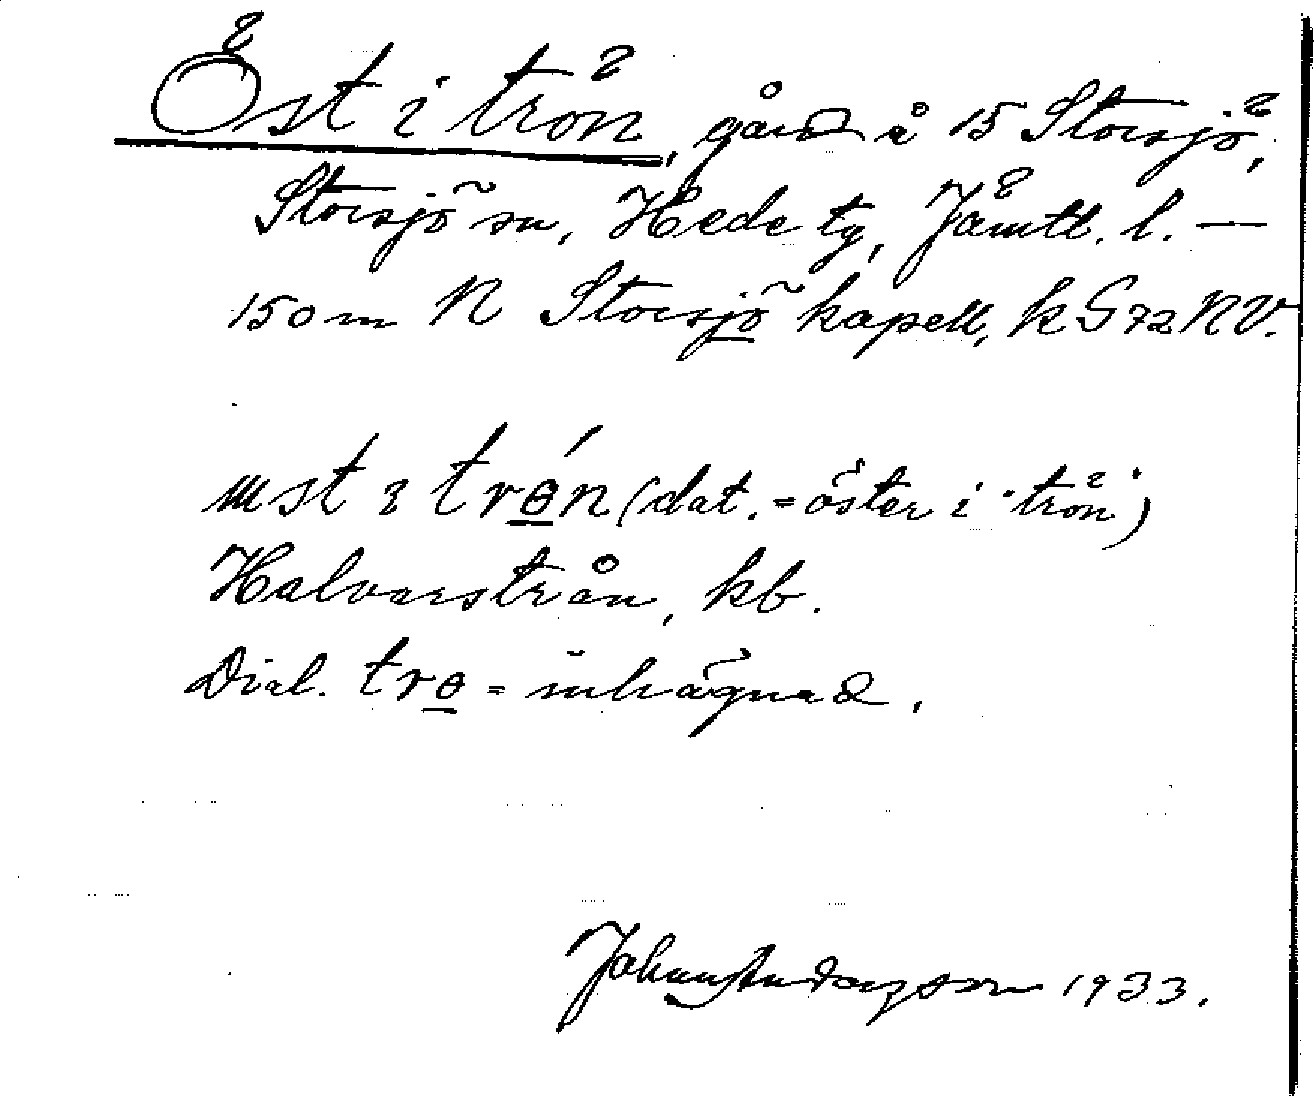 Öst i trön, gård å 15 Storsjö,
Storsjö sn, Hede tg, Jämtl. l. —
150 m N Storsjö kapell, k G 72 NV.
ɯst ɩ trɵ́n (dat. = öster i "trön")
Halvarstrån, kb.
Dial. trɵ = inhägnad.
Johan Andersson 1933.